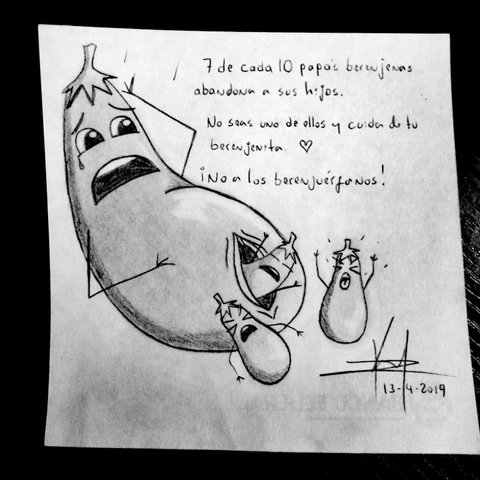 7 de cada 10 papás berenjenas
abandona a sus hijos.
No seas uno de ellos y cuida de tu
berenjenita. ♡
¡No a los berenjuérfanos!
13-4-2019